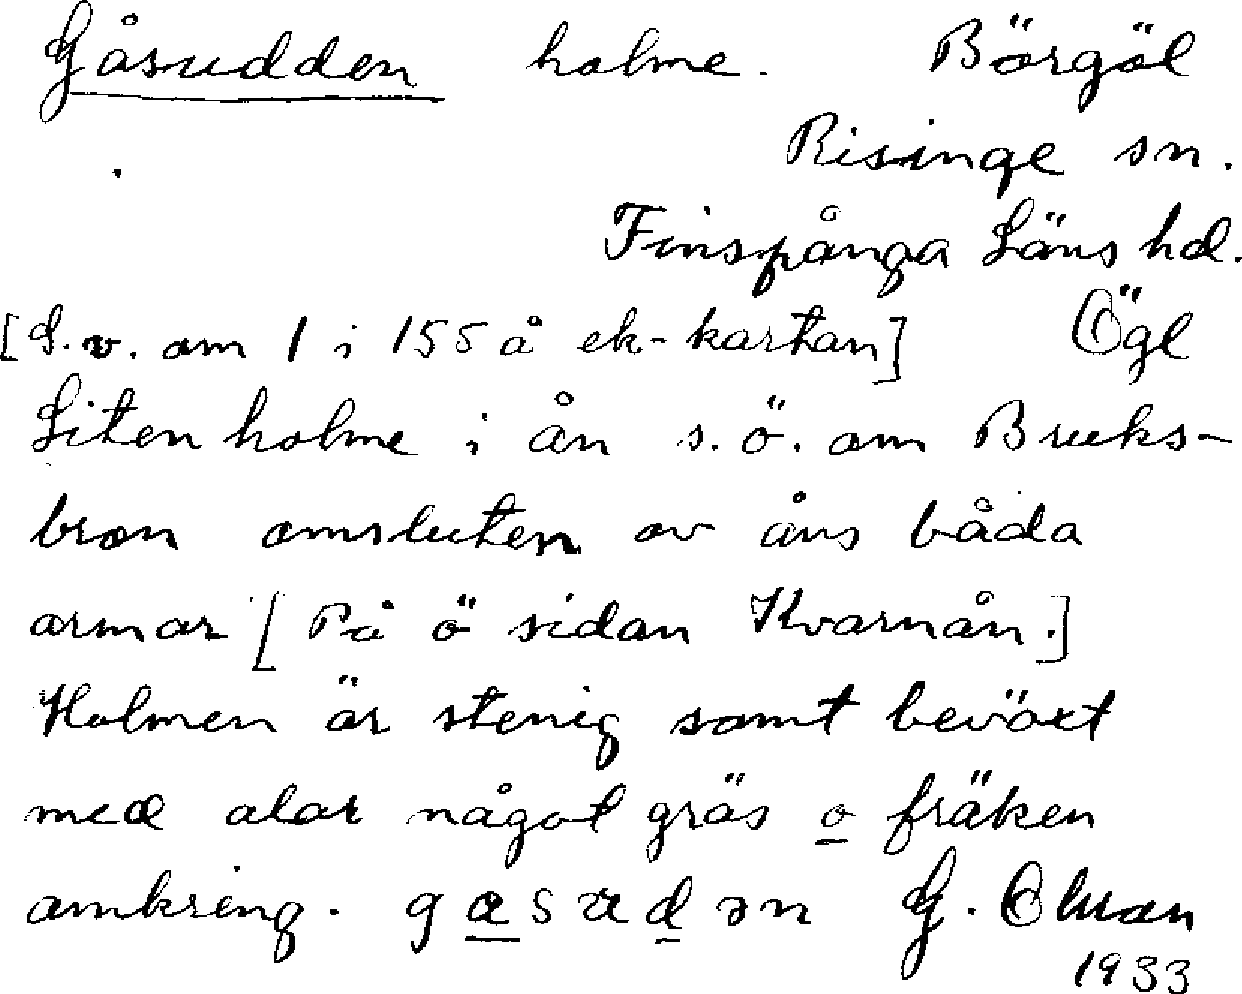 Gåsudden holme. Börgöl
Risinge sn.
Finspånga Läns hd.
[S.v. om 1 i 155 å ek-kartan] Ögl
Liten holme i ån s.ö. om Bruks-
bron omsluten av åns båda
armar [På ö sidan Kvarnån.]
Holmen är stenig samt beväxt
med alar något gräs o fräken
omkring. gasudən G. Olsson
1933